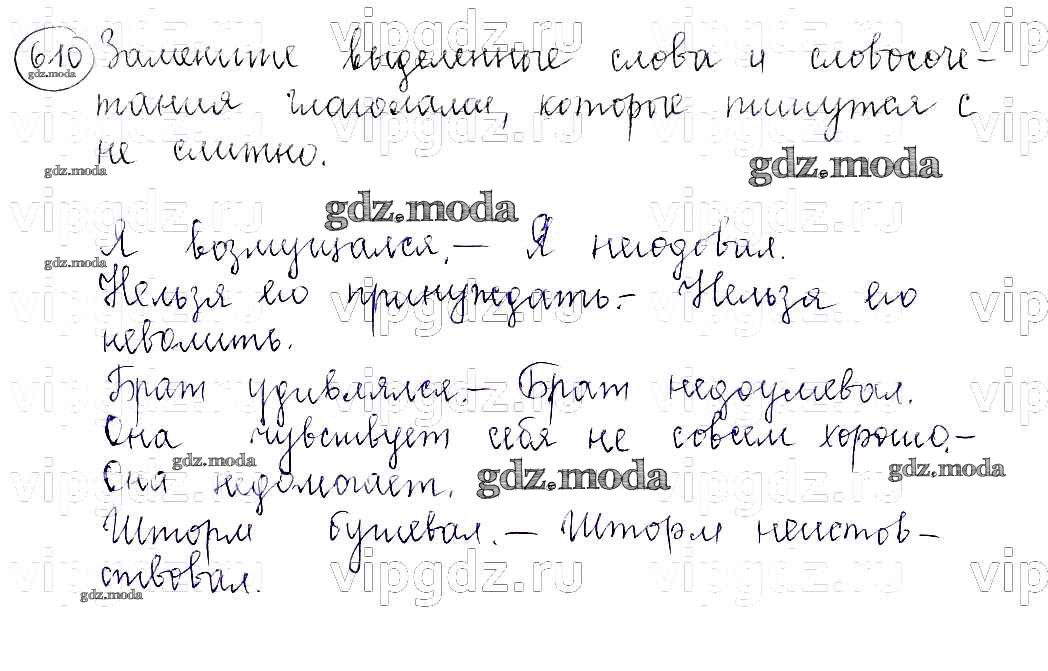 610 Замените выделенные слова и словосоче-
тания глаголами, которые пишутся с
не слитно.
Я возмущался. — Я негодовал.
Нельзя его принуждать. - Нельзя его
неволить.
Брат удивлялся. - Брат недоумевал.
Она чувствует себя не совсем хорошо. -
Она недомогает.
Шторм бушевал. - Шторм неистов-
ствовал.